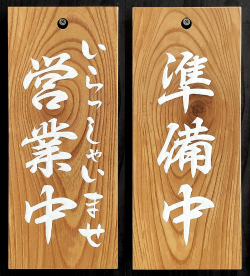 いらっしゃいませ
営業中
準備中